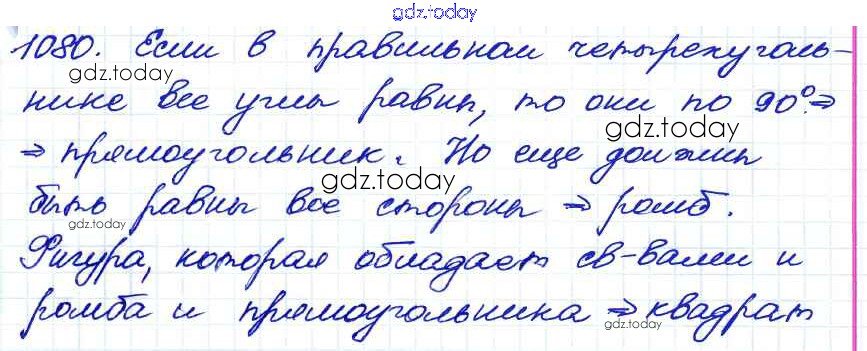 gdz.today
1080. Если в правильном четырехуголь-
gdz.today
нике все углы равны, то они по 90°. ⇒
gdz.today
⇒ прямоугольник. Но еще должны
gdz.today
быть равны все стороны ⇒ ромб.
gdz.today
Фигура, которая обладает св-вами и
ромба и прямоугольника ⇒ квадрат
gdz.today